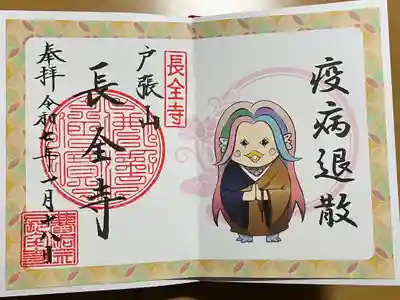 疫病退散
長全寺
戸張山
長全寺
奉拝 令和七年一月十八日